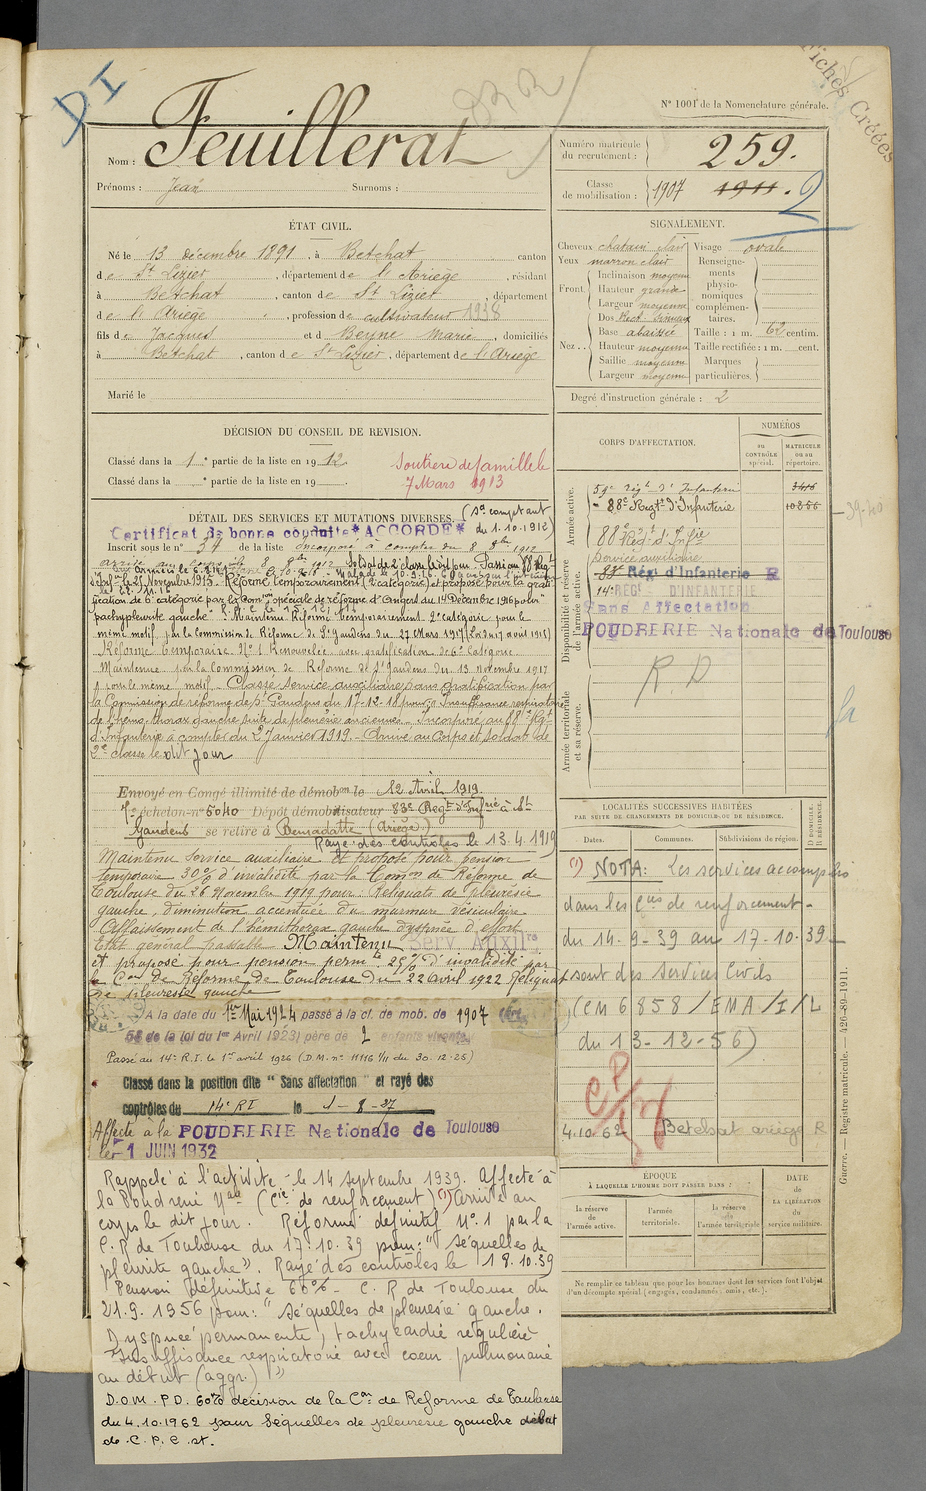 DI
Fiches Créées
N° 1001 de la Nomenclature générale.
Nom : Feuillerat
Prénoms : Jean Surnoms :
Numéro matricule du recrutement : 259.
Classe de mobilisation : 1907 1911. 2
ÉTAT CIVIL.
Né le 13 décembre 1891, à Betchat canton
de St Lizier, département de l'Ariège, résidant
à Betchat, canton de St Lizier, département
de l'Ariège, profession de cultivateur 1938
fils de Jacques et de Beyne Marie, domiciliés
à Betchat, canton de St Lizier, département de l'Ariège
Marié le
SIGNALEMENT.
Cheveux chatain clair Visage ovale
Yeux marron clair
Front. Inclinaison moyenne
Hauteur grande
Largeur moyenne
Nez. Dos Rect. Sinueux
Base abaissée
Hauteur moyenne
Saillie moyenne
Largeur moyenne
Renseignements physionomiques complémentaires.
Taille : 1 m. 62 centim.
Taille rectifiée : 1 m. cent.
Marques particulières.
Degré d'instruction générale : 2
DÉCISION DU CONSEIL DE REVISION.
Classé dans la 1e partie de la liste en 1912
Classé dans la e partie de la liste en 19
Soutien de famille le
7 Mars 1913
DÉTAIL DES SERVICES ET MUTATIONS DIVERSES. (Se comptant
du 1.10.1912)
Certificat de bonne conduite * ACCORDÉ *
Inscrit sous le n° 34 de la liste Incorporé à compter du 8 8bre 1912
le 25 Novembre 1913. Réformé temporairement (2e catégorie) et proposé pour la gratification
de 6e catégorie par la Comon spéciale de réforme d'Angers du 14 Décembre 1916 pour "
pachypleurite gauche" Maintenu Réformé temporairement 2e catégorie pour le
même motif par la Commission de Réforme de St Gaudens du 27 Mars 1917
Réforme Temporaire N° 1 Renouvelée avec gratification de 6e Catégorie
Maintenue par la Commission de Réforme de St Gaudens du 13 novembre 1917
pour le même motif - Classé Service auxiliaire sans gratification par
la Commission de réforme de St Gaudens du 17-12-18 pour Insuffisance respiratoire
de l'hémothorax gauche suite de pleurésie ancienne. - Incorporé au 88e Régt
d'Infanterie à compter du 2 Janvier 1919. - Arrivé au Corps et soldat de
2e classe le dit jour
Envoyé en Congé illimité de démobon le 12 Avril 1919.
7e échelon n° 5040 Dépôt démobilisateur 83e Regt d'Infrie à St
Gaudens se retire à (Ariège)
Rayé des contrôles le 13.4.1919
Maintenu service auxiliaire et proposé pour pension
temporaire 30% d'invalidité par la Comon de Réforme de
Toulouse du 26 Novembre 1919 pour : Reliquats de pleurésie
gauche, diminution accentuée du murmure vésiculaire.
Affaissement de l'hémithorax gauche dyspnée d'effort
Etat général passable Maintenu Serv. Auxilre
et proposé pour pension permte 25% d'invalidité par
la Con de Réforme de Toulouse du 22 avril 1922 Reliquat
de pleurésie gauche
A la date du 1er Mai 1924 passé à la cl. de mob. de 1907
58 de la loi du 1er Avril 1923) père de 2 enfants vivants.
Passé au 14e R.I. le 1er avril 1926 (D.M. n° 11116 1/11 du 30.12.25)
Classé dans la position dite " Sans affectation " et rayé des
contrôles du 14e RI le 1-8-27
Affecté à la POUDRERIE Nationale de Toulouse
le 1 JUIN 1932
Rappelé à l'activité le 14 septembre 1939. Affecté à
la Poudrerie Nale (Cie de renforcement) (1) arrivé au
corps le dit jour. Réformé définitif N° 1 par la
C. R de Toulouse du 17.10.39 pour : " Séquelles de
pleurite gauche". Rayé des contrôles le 18.10.39
Pension définitive 60% - C. R de Toulouse du
21.9.1956 pour : " Séquelles de pleurésie gauche.
Dyspnée permanente, tachycardie régulière
Insuffisance respiratoire avec coeur pulmonaire
au début (aggr.) "
D.O.M. P.D. 60% décision de la Con de Réforme de Toulouse
du 4.10.1962 pour Séquelles de pleurésie gauche début
de C. P. C. st.
CORPS D'AFFECTATION.
NUMÉROS
AU CONTRÔLE spécial.
MATRICULE OU AU répertoire.
Armée active.
59e Régt d'Infanterie 3416
88e Régt d'Infanterie 10856
Disponibilité et réserve de l'armée active.
88e Régt d'Infie
Service auxiliaire
88 Régt d'Infanterie R
14e RÉGt D'INFANTERIE
Sans Affectation
POUDRERIE Nationale de Toulouse
Armée territoriale et sa réserve.
R.D
LOCALITÉS SUCCESSIVES HABITÉES
PAR SUITE DE CHANGEMENTS DE DOMICILE OU DE RÉSIDENCE.
Dates. Communes. Subdivisions de région. D DOMICILE. R RÉSIDENCE.
(1) NOTA : Les services accomplis
dans les Cies de renforcement -
du 14-9-39 au 17-10-39
sont des services Civils
(CM 6858/EMA/I/L
du 13-12-56)
4.10.62 Betchat ariège R
ÉPOQUE
À LAQUELLE L'HOMME DOIT PASSER DANS :
la réserve de l'armée active.
l'armée territoriale.
la réserve de l'armée territoriale
DATE de LA LIBÉRATION du service militaire.
Ne remplir ce tableau que pour les hommes dont les services font l'objet
d'un décompte spécial (engagés, condamnés, omis, etc.).
Guerre. — Registre matricule. — 426-89-1911.